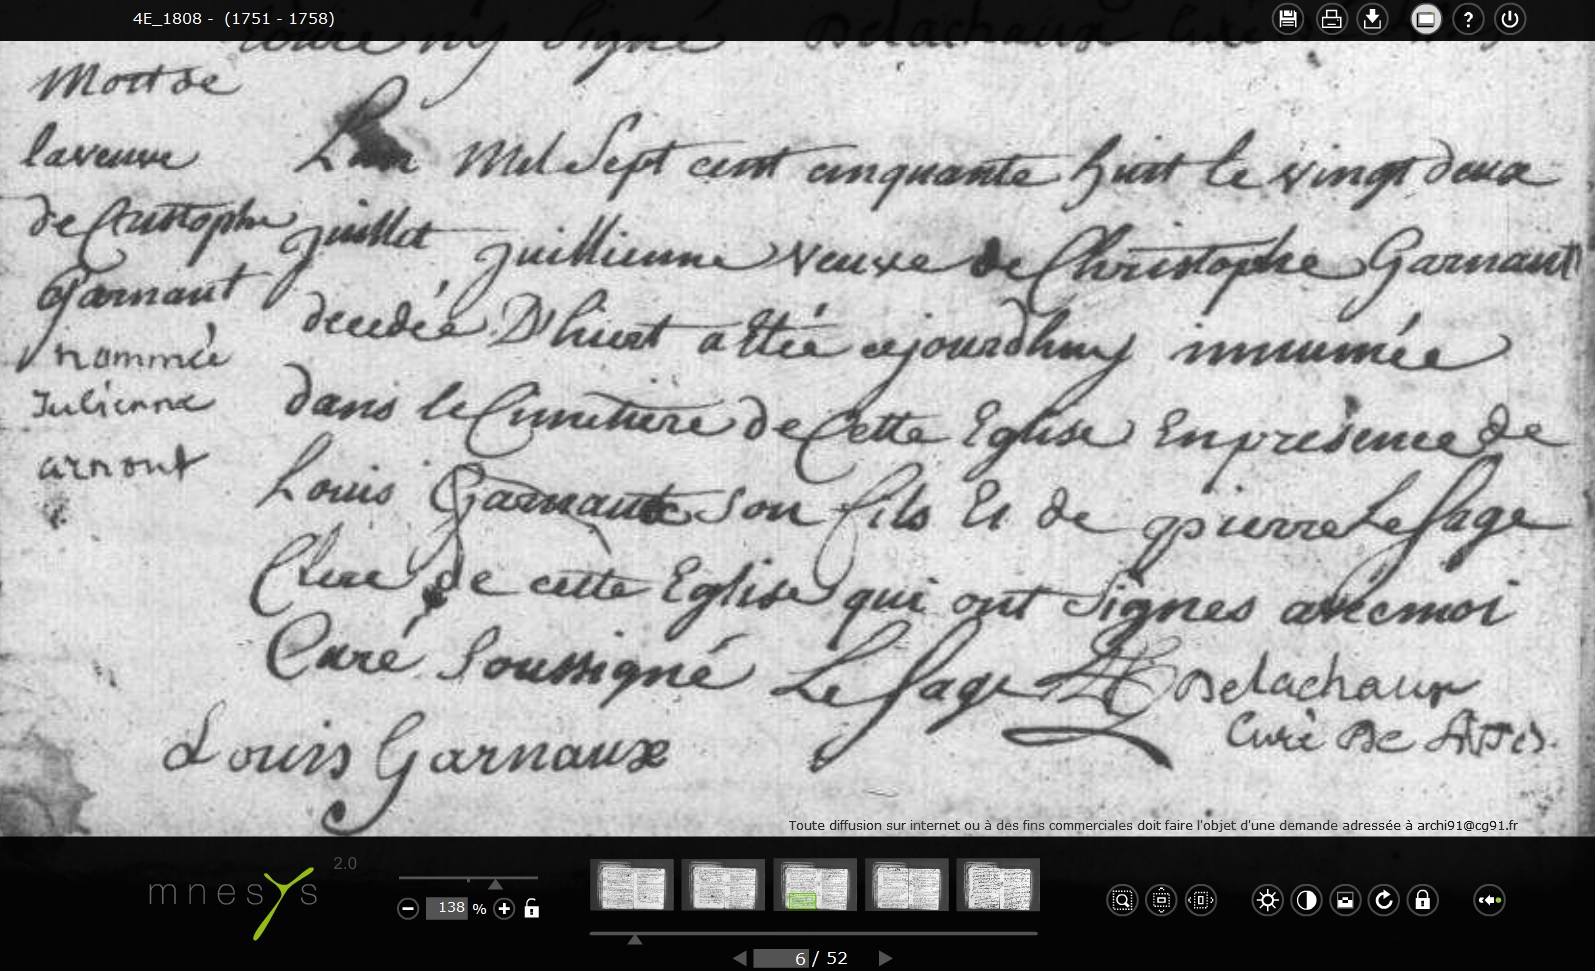 4E_1808 - (1751 - 1758)
Signé Delachaux Curé
Mort de
la veuve
de Cristophe
Garnaut
nommée
Julienne
arnout
L'an Mil Sept cent cinquante huit le vingt deux
juillet juillienne veuve de Christophe Garnaut
decedée D'hiert a Ettée cejourdhuy innumée
dans le Cimetiere de Cette Eglise En presence de
Louis Garnaut son fils Et de pierre Le Sage
Clerc de cette Eglise qui ont Signes avec moi
Curé Soussigné Le Sage Delachaux
Curé De
Louis Garnaux
Toute diffusion sur internet ou à des fins commerciales doit faire l'objet d'une demande adressée à archi91@cg91.fr
mnesys 2.0
138 %
6 / 52